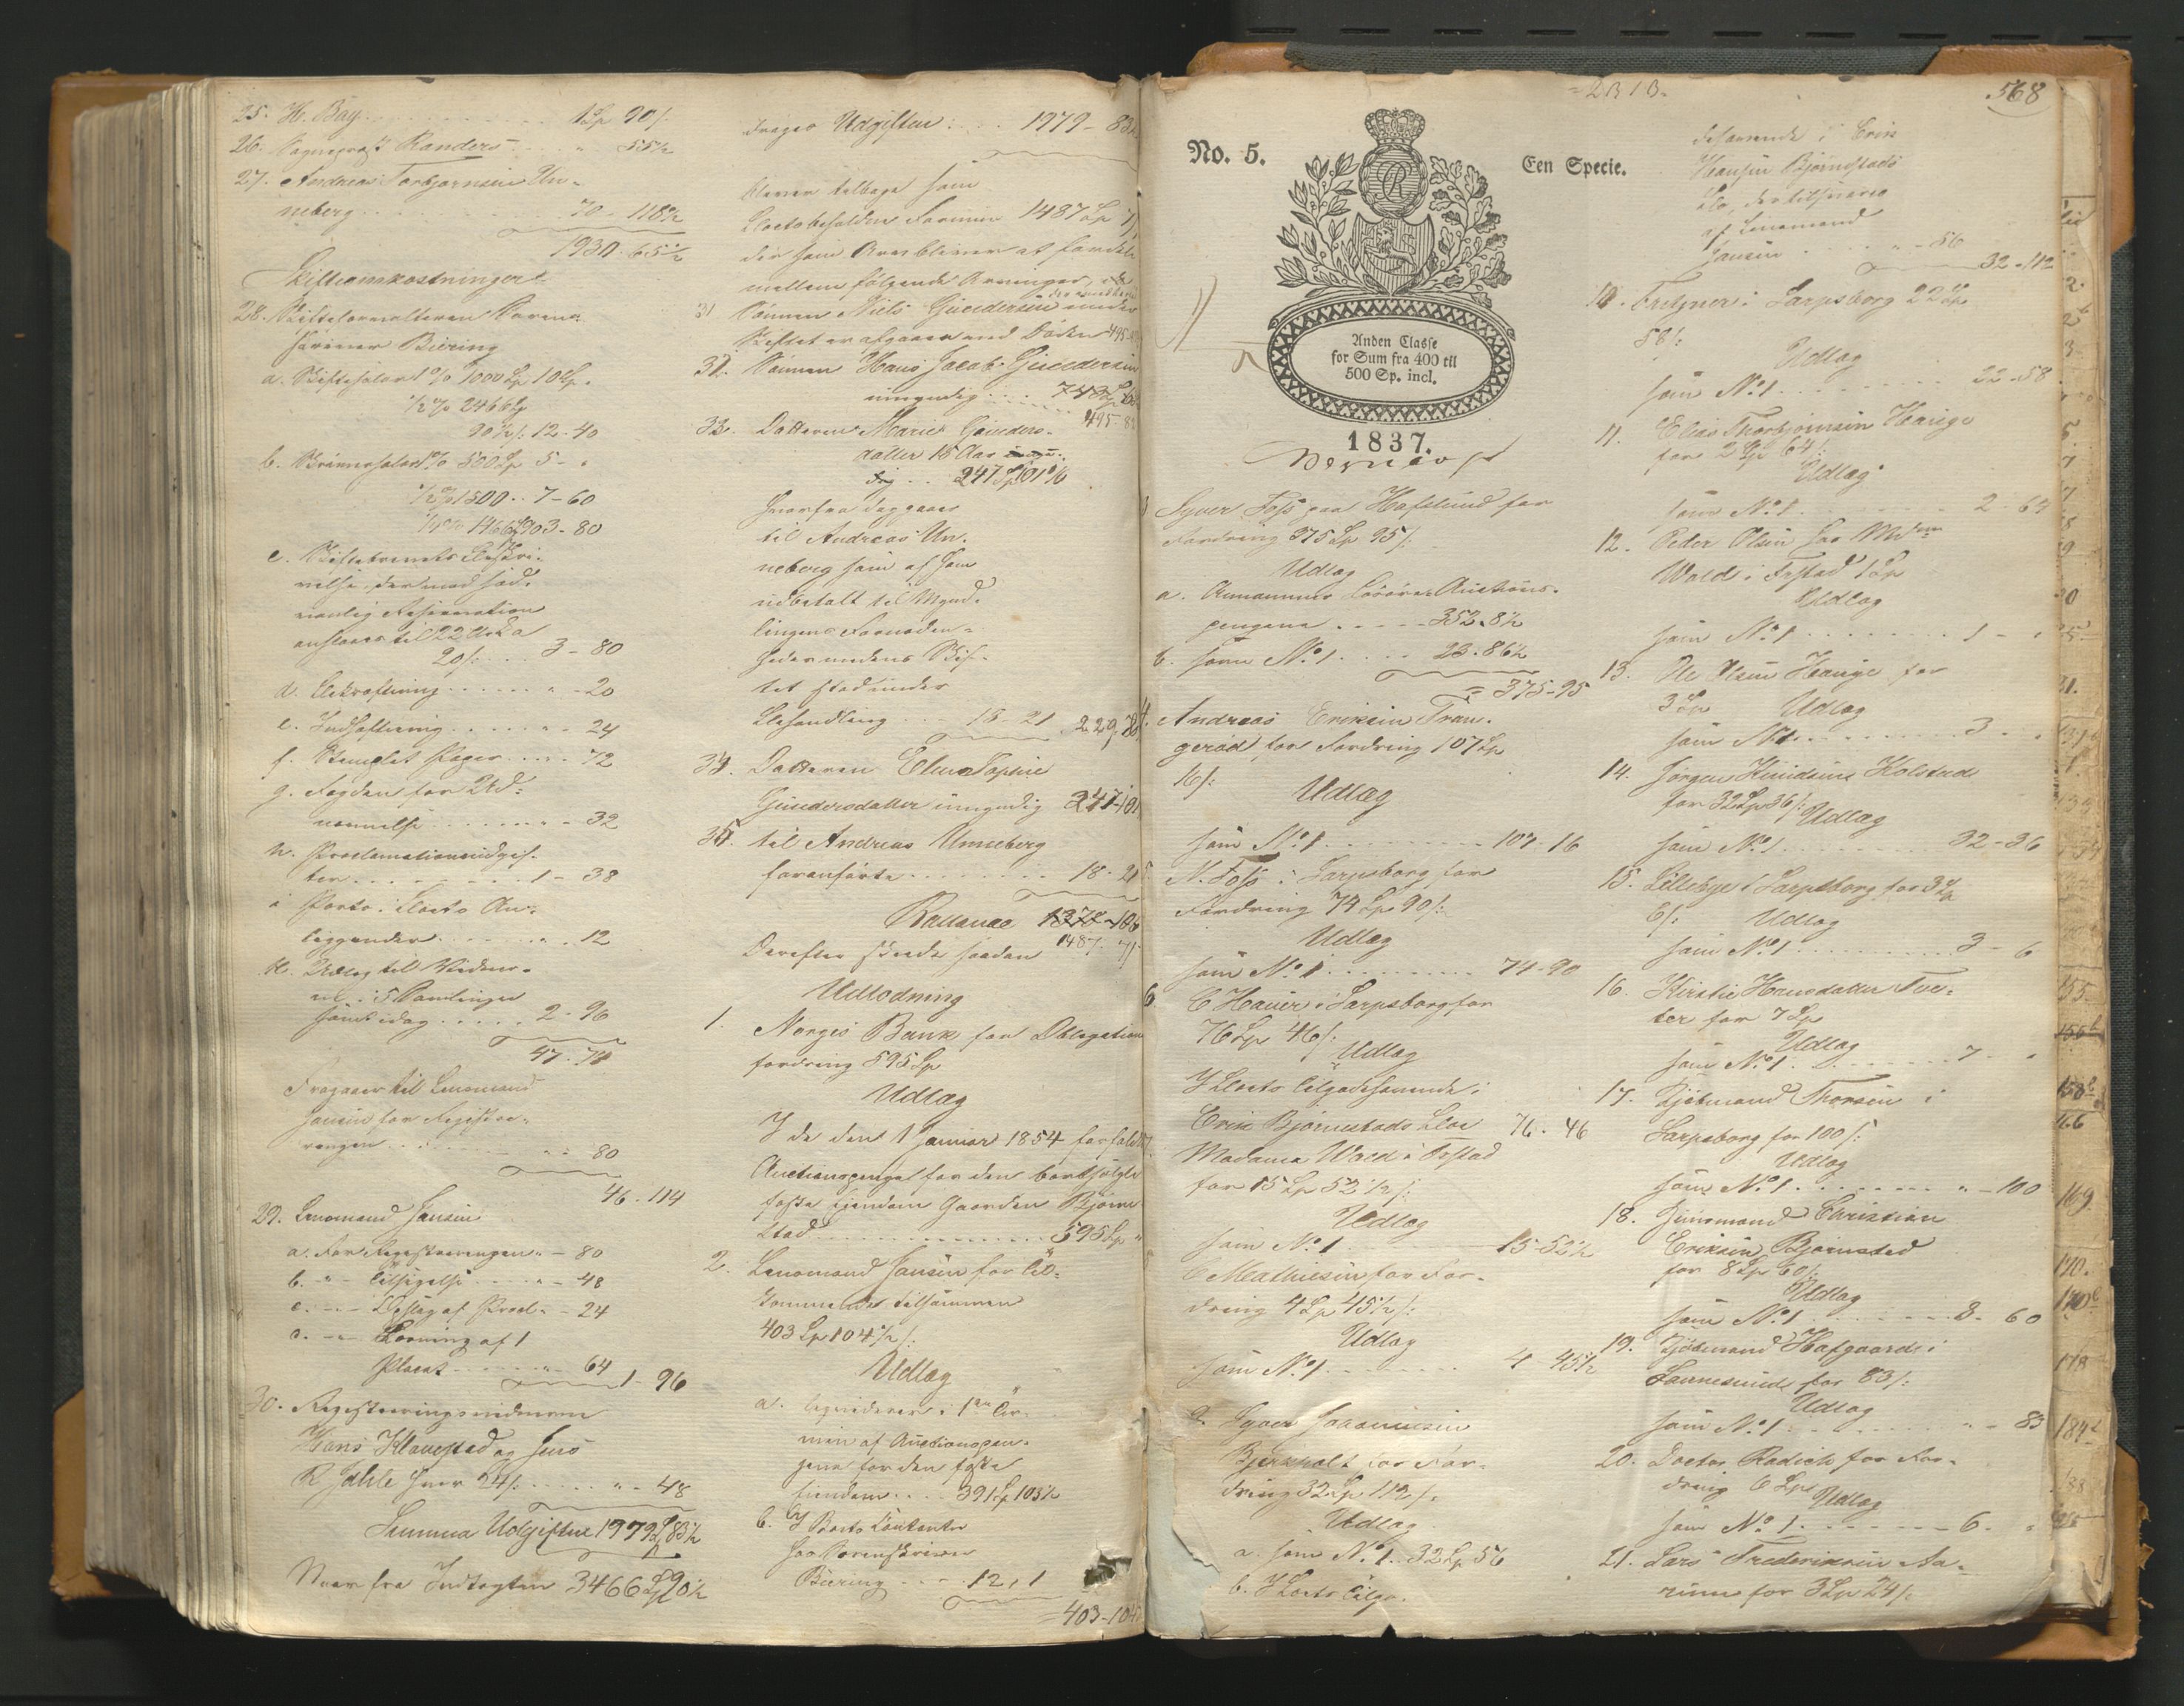 25. H. Bay . . . 1 Sp 90 s
26. Sogneprest Randers . . . " 55½
27. Andreas Torbjørnsen Un-
neberg . . . 70 - 118½
1930 - 65½
Skifteomkostninger
28. Skifteforvalteren Soren-
skriver Biering
a. Skiftesalar 1 % 1000 Sp 10 Sp.
½ % 2466 Sp
90½ s: 12 - 40
b. Skriversalar 1 % 500 Sp 5 - "
½ % 1500 . . 7 - 60
3 - 80
c. Skiftebrevets Beskri-
velse
anslaaes til 22 Ark a
20 s: . . . 3 - 80
d. Bekræftning . . . " - 20
e. Indhæftning . . . " - 24
f. Stemplet Papir . . . " 72
g. Fogden for Ud-
nævnelse . . . " - 32
h. Proclamationsudgif-
ter . . . 1 - 38
i. Porto i Boets An-
liggender . . . " - 12
k. Udlæg til Vidner-
ne i 5 Samlinger
samt idag . . . 2 - 96
47 - 74
Fragaaer til Lensmand
Jansen for Registre-
ringen . . . " - 80
46 - 114
29. Lensmand Jansen
a. For Registreringen " - 80
b. - " - Tilsigelse . . . " - 48
c. - " - Opslag af Procl. " - 24
d. - " - Læsning af 1
Placat . . . " - 64
1 - 96
30. Registreringsmændene
Hans Klavestad og Jens
R. Jahle hver 24 s: . . . " - 48
Summa Udgifter 1979 Sp 83½
Naar fra Indtægten 3466 Sp 90½
drages Udgifter . . . 1979 - 83½
bliver tilbage som
Boets beholdne Formue 1487 Sp 7
der som Arv bliver at fordele
mellem følgende Arvinger,
31. Sønnen Niels Gundersen under
Skiftet er afgaaet ved Døden 495
32. Sønnen Hans Jacob Gundersen
umyndig . . . 743 Sp
495 - 8
33. Datteren Marie Gunders-
datter 18 Aar
247 Sp 101
hvorfra fragaaer
til Andreas Un-
neberg som af ham
udbetalt til Mynd-
lingens Fornøden-
heder medens Skif-
tet stod under
Behandling . . . 18 - 21 229 - 80
34. Datteren Elen Sophie
Gundersdatter umyndig 247 - 101
35. til Andreas Unneberg
foranførte . . . 18 - 21
Ballance 1378 - 106
1487 - 71
Derefter skeede saadan
Udlodning
1. Norges Bank for Obligations
fordring 595 Sp
Udlæg
I de den 1 Januar 1854 forfaldne
Auctionspenge for den bortsolgte
faste Eiendom Gaarden Bjørne-
stad . . . 595 Sp "
2. Lensmand Jansen for Til-
kommende tilsammen
403 Sp 104½ s.
Udlæg
a. liqviderer i 1ste Ter-
min af Auctionspen-
gene for den faste
Eiendom . . . 391 Sp 103½
b. I Boets Contanter
hos Sorenskriver
Biering . . . 12 " 1
403 - 104½
2B1B.
568
No. 5.
Een Specie.
Anden Classe
for Sum fra 400 til
500 Sp. incl.
1837.
Syver Foss paa Hafslund for
Fordring 375 Sp 95 s:
Udlæg
a. Auctions-
pengene . . . 352 - 8½
b. som No 1 . . . 23 - 86½
= 375 - 95
4. Andreas Eriksen Tran-
gerød for Fordring 107 Sp
16 s: Udlæg
som No 1 . . . 107 - 16
N. Foss i Sarpsborg for
Fordring 74 Sp 90 s:
Udlæg
som No 1 . . . 74 - 90
6. C Hauer i Sarpsborg for
76 Sp 46 s:
Udlæg
I Boets Tilgodehavende i
Erik Bjørnestads Boe 76 - 46
Madame Wold i Festad
for 15 Sp 52½ s:
Udlæg
som No 1 . . . 15 - 52½
C Mathiesen for For-
dring 4 Sp 45½ s:
Udlæg
som No 1 . . . 4 - 45½
9. Syver Johannesen
Bjerkholt for For-
dring 32 Sp 112 s.
Udlæg
a. som No 1 . . 32 Sp 56
b. I Boets Tilgo-
dehavende i Erik
Hansen Bjørnestads
Bo, der tilsvares
af Lensmand
Jansen . . . " - 56
32 - 112
10. Fretzner i Sarpsborg 22 Sp
58 s: Udlæg
som No 1 . . . 22 - 58
11. Elias Thorbjørnsen Hauge
for 2 Sp 64 s:
Udlæg
som No 1 . . . 2 - 64
12. Peder Olsen hos Mdm
Wold i Festad 1 Sp
Udlæg
som No 1 . . . 1 - "
13. Ole Olsen Hauge for
3 Sp Udlæg
som No 1 . . . 3 - "
14. Jørgen Knudsen Kolstad
for 32 Sp 36 s: Udlæg
som No 1 . . . 32 - 36
15. Lillebye i Sarpsborg for 3 Sp
6 s: Udlæg
som No 1 . . . 3 - 6
16. Kirstie Hansdatter Tve-
ter for 7 Sp
Udlæg
som No 1 . . . 7 - "
17. Kjøbmand Thoresen i
Sarpsborg for 100 s:
Udlæg
som No 1 . . . " - 100
18. Huusmand Christian
Eriksen Bjørnestad
for 8 Sp 60 s:
Udlæg
som No 1 . . . 8 - 60
19. Kjøbmand Hafgaard i
Sannesund for 83 s:
Udlæg
som No 1 . . . " - 83
20. Doctor Radich for For-
dring 6 Sp Udlæg
som No 1 . . . 6 - "
21. Lars Frederiksen Aa-
rum for 3 Sp 24 s: